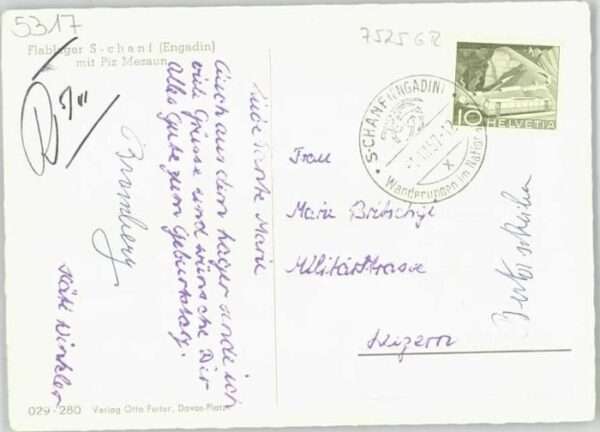 5317
7525 GR
Flablager S-chanf (Engadin)
mit Piz Mezaun
Liebe Tante Marie
Auch aus dem Lager sende ich
viele Grüsse und wünsche Dir
alles Gute zum Geburtstag.
Bromberg
Käti Winkler
S-CHANF (ENGADIN)
Wanderungen im Nation
10 HELVETIA
Frau
Marie Britschgi
Militärstrasse
Luzern
029-280 Verlag Otto Furter, Davos-Platz